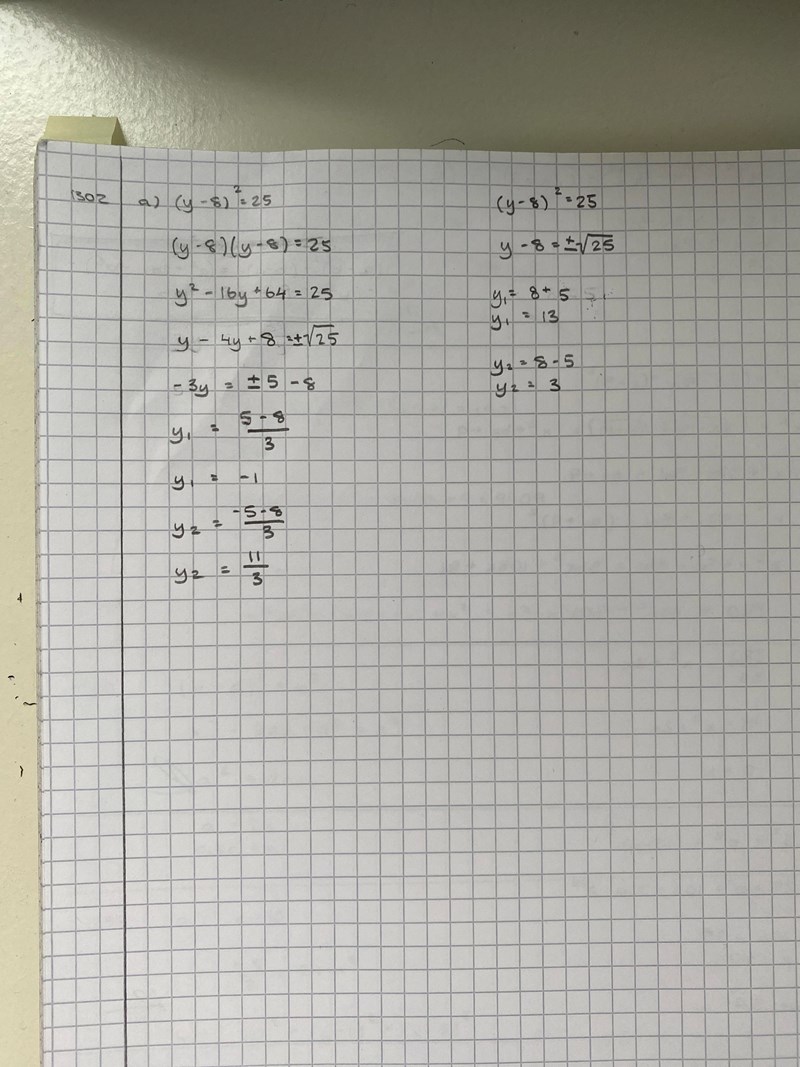 1302 a) (y-8)² = 25
(y-8)(y-8) = 25
y² - 16y + 64 = 25
y - 4y + 8 = ±√25
-3y = ±5 - 8
y₁ = (5-8)/3
y₁ = -1
y₂ = (-5-8)/3
y₂ = 11/3
(y-8)² = 25
y-8 = ±√25
y₁ = 8+5
y₁ = 13
y₂ = 8-5
y₂ = 3